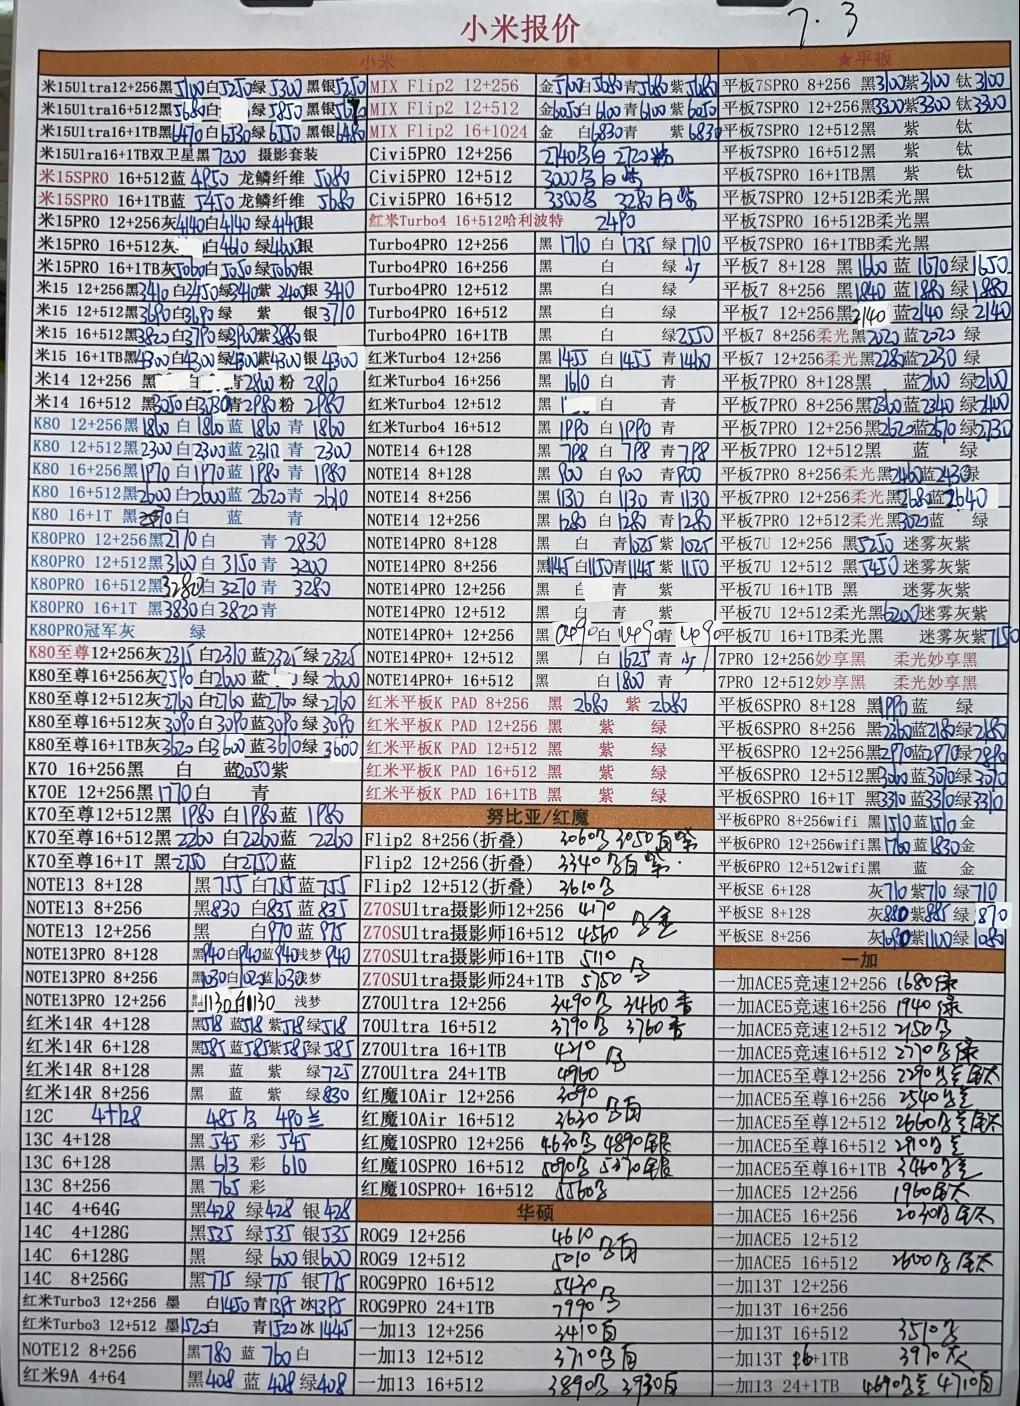 7.3
小米报价
小米
米15Ultra12+256黑5100白5250绿5300 黑银5250
米15Ultra12+512黑5680白 绿5850 黑银
米15Ultra16+1TB黑6470白6530绿6550 黑银6480
米15Ulra16+1TB双卫星黑7200 摄影套装
米15SPRO 16+512蓝 4950 龙鳞纤维 5080
米15SPRO 16+1TB蓝 5450 龙鳞纤维 5680
米15PRO 12+256灰4140白4140 绿4140银
米15PRO 16+512灰 白4610 绿4600银
米15PRO 16+1TB灰5060白5050绿5060银
米15 12+256黑3410白3450绿3410紫 3400银 3410
米15 12+512黑3690白3690绿 紫 银3710
米15 16+512黑3820白3790绿3900紫3880银
米15 16+1TB黑4300白4300绿4300紫4300 银4300
米14 12+256 黑 白 青2800粉 2810
米14 16+512 黑3050白3030青2980粉 2980
K80 12+256黑1860 白 1860 蓝 1860 青 1860
K80 12+512黑2300 白2300蓝2310 青 2300
K80 16+256黑1970白1970蓝 1980 青 1980
K80 16+512黑2600白2600蓝 2620青 2610
K80 16+1T 黑 白 蓝 青
K80PRO 12+256黑2770白 青 2830
K80PRO 12+512黑3100 白 3150 青 3200
K80PRO 16+512黑3280白3270 青 3280
K80PRO 16+1T 黑3830白3820青
K80PRO冠军灰 绿
K80至尊12+256灰2315白2310蓝2325绿2325
K80至尊16+256灰2590白2600蓝 绿2600
K80至尊12+512灰2760白2760蓝2760绿2760
K80至尊16+512灰3090白3090蓝3090绿3090
K80至尊16+1TB灰3620白3600蓝3610绿3600
K70 16+256黑 白 蓝2050紫
K70E 12+256黑1770白 青
K70至尊12+512黑1980白1980蓝 1980
K70至尊16+512黑2260 白2260蓝 2260
K70至尊16+1T 黑2750 白2750蓝
NOTE13 8+128 黑755白755蓝755
NOTE13 8+256 黑830 白835蓝835
NOTE13 12+256 黑 白970蓝975
NOTE13PRO 8+128 黑940白940蓝940浅梦940
NOTE13PRO 8+256 黑1030白1020蓝1030浅梦
NOTE13PRO 12+256 黑1130白1130 浅梦
红米14R 4+128 黑518 蓝518紫518绿518
红米14R 6+128 黑585蓝585紫585绿585
红米14R 8+128 黑 蓝 紫 绿725
红米14R 8+256 黑 蓝 紫 绿830
12C 4+128 485 490兰
13C 4+128 黑 545 彩 545
13C 6+128 黑 613 彩 610
13C 8+256 黑 765 彩
14C 4+64G 黑428绿428 银428
14C 4+128G 黑535绿535 银535
14C 6+128G 黑 绿600银600
14C 8+256G 黑775绿775 银775
红米Turbo3 12+256 墨 白1450青1395冰1395
红米Turbo3 12+512 墨1520白 青1520冰1445
NOTE12 8+256 黑780 蓝760白
红米9A 4+64 黑408 蓝 408绿408
MIX Flip2 12+256 金5100白5080青5080紫5080
MIX Flip2 12+512 金6050白6100青6100紫6050
MIX Flip2 16+1024 金 白6830青 紫6830
Civi5PRO 12+256 2740白 2720
Civi5PRO 12+512 3000
Civi5PRO 16+512 3300 3280
红米Turbo4 16+512哈利波特 2490
Turbo4PRO 12+256 黑 1710 白 1735 绿1710
Turbo4PRO 16+256 黑 白 绿少
Turbo4PRO 12+512 黑 白 绿
Turbo4PRO 16+512 黑 白 绿
Turbo4PRO 16+1TB 黑 白 绿2550
红米Turbo4 12+256 黑 1455 白1455 青1460
红米Turbo4 16+256 黑 1610 白 青
红米Turbo4 12+512 黑 白 青
红米Turbo4 16+512 黑 1990白 1990青
NOTE14 6+128 黑 798 白 798 青798
NOTE14 8+128 黑 900 白 900 青900
NOTE14 8+256 黑 1130 白 1130 青1130
NOTE14 12+256 黑 1280 白 1280青1280
NOTE14PRO 8+128 黑 白 青1025紫1025
NOTE14PRO 8+256 黑1145白1150青1145紫1150
NOTE14PRO 12+256 黑 白 青 紫
NOTE14PRO 12+512 黑 白 青 紫
NOTE14PRO+ 12+256 黑 1490白 1490青1490
NOTE14PRO+ 12+512 黑 白1625青少
NOTE14PRO+ 16+512 黑 白1800青
红米平板K PAD 8+256 黑 2680 紫 2680
红米平板K PAD 12+256 黑 紫 绿
红米平板K PAD 12+512 黑 紫 绿
红米平板K PAD 16+512 黑 紫 绿
红米平板K PAD 16+1TB 黑 紫 绿
努比亚/红魔
Flip2 8+256(折叠) 3060 3050白
Flip2 12+256(折叠) 3340 白
Flip2 12+512(折叠) 3610
Z70SUltra摄影师12+256 4170
Z70SUltra摄影师16+512 4560
Z70SUltra摄影师16+1TB 5110
Z70SUltra摄影师24+1TB 5750
Z70Ultra 12+256 3490 3460
70Ultra 16+512 3790 3760
Z70Ultra 16+1TB 4210
Z70Ultra 24+1TB 4960
红魔10Air 12+256 3090
红魔10Air 16+512 3630白
红魔10SPRO 12+256 4630 4890银
红魔10SPRO 16+512 5090 5370银
红魔10SPRO+ 16+512 5560
华硕
ROG9 12+256 4610
ROG9 12+512 5010白
ROG9PRO 16+512 5430
ROG9PRO 24+1TB 7990
一加13 12+256 3410白
一加13 12+512 3710白
一加13 16+512 3890 3930白
★平板
平板7SPRO 8+256 黑3100紫3100 钛3100
平板7SPRO 12+256 黑3300紫3300 钛3300
平板7SPRO 12+512黑 紫 钛
平板7SPRO 16+512黑 紫 钛
平板7SPRO 16+1TB黑 紫 钛
平板7SPRO 12+512B柔光黑
平板7SPRO 16+512B柔光黑
平板7SPRO 16+1TBB柔光黑
平板7 8+128 黑1660 蓝1670绿1650
平板7 8+256 黑1840 蓝1880绿1880
平板7 12+256黑2140蓝2140绿2140
平板7 8+256柔光黑2020蓝2020 绿
平板7 12+256柔光黑2280蓝2230 绿
平板7PRO 8+128黑 蓝2100绿2100
平板7PRO 8+256黑2360蓝2340绿2400
平板7PRO 12+256黑2620蓝2670绿2730
平板7PRO 12+512黑 蓝 绿
平板7PRO 8+256柔光黑2460蓝2430绿
平板7PRO 12+256柔光黑2680蓝2640
平板7PRO 12+512柔光黑3020蓝 绿
平板7U 12+256 黑5250 迷雾灰紫
平板7U 12+512 黑5450 迷雾灰紫
平板7U 16+1TB 黑 迷雾灰紫
平板7U 12+512柔光黑6200迷雾灰紫
平板7U 16+1TB柔光黑 迷雾灰紫7150
7PRO 12+256妙享黑 柔光妙享黑
7PRO 12+512妙享黑 柔光妙享黑
平板6SPRO 8+128 黑1990蓝 绿
平板6SPRO 8+256 黑2360蓝2180绿2180
平板6SPRO 12+256黑2970蓝2970绿2890
平板6SPRO 12+512黑3060蓝3070绿3070
平板6SPRO 16+1T 黑3310蓝3310绿3310
平板6PRO 8+256wifi 黑1510蓝1510金
平板6PRO 12+256wifi黑1760蓝1830金
平板6PRO 12+512wifi黑 蓝 金
平板SE 6+128 灰710紫710 绿710
平板SE 8+128 灰880紫885 绿870
平板SE 8+256 灰1080紫1100绿1080
一加
一加ACE5竞速12+256 1680绿
一加ACE5竞速16+256 1940绿
一加ACE5竞速12+512 2150
一加ACE5竞速16+512 2270绿
一加ACE5至尊12+256 2290
一加ACE5至尊16+256 2540
一加ACE5至尊12+512 2660
一加ACE5至尊16+512 2910
一加ACE5至尊16+1TB 3460
一加ACE5 12+256 1960钛
一加ACE5 16+256 2030钛
一加ACE5 12+512
一加ACE5 16+512 2600钛
一加13T 12+256
一加13T 16+256
一加13T 16+512 3510
一加13T 16+1TB 3970
一加13 24+1TB 4690 4710白